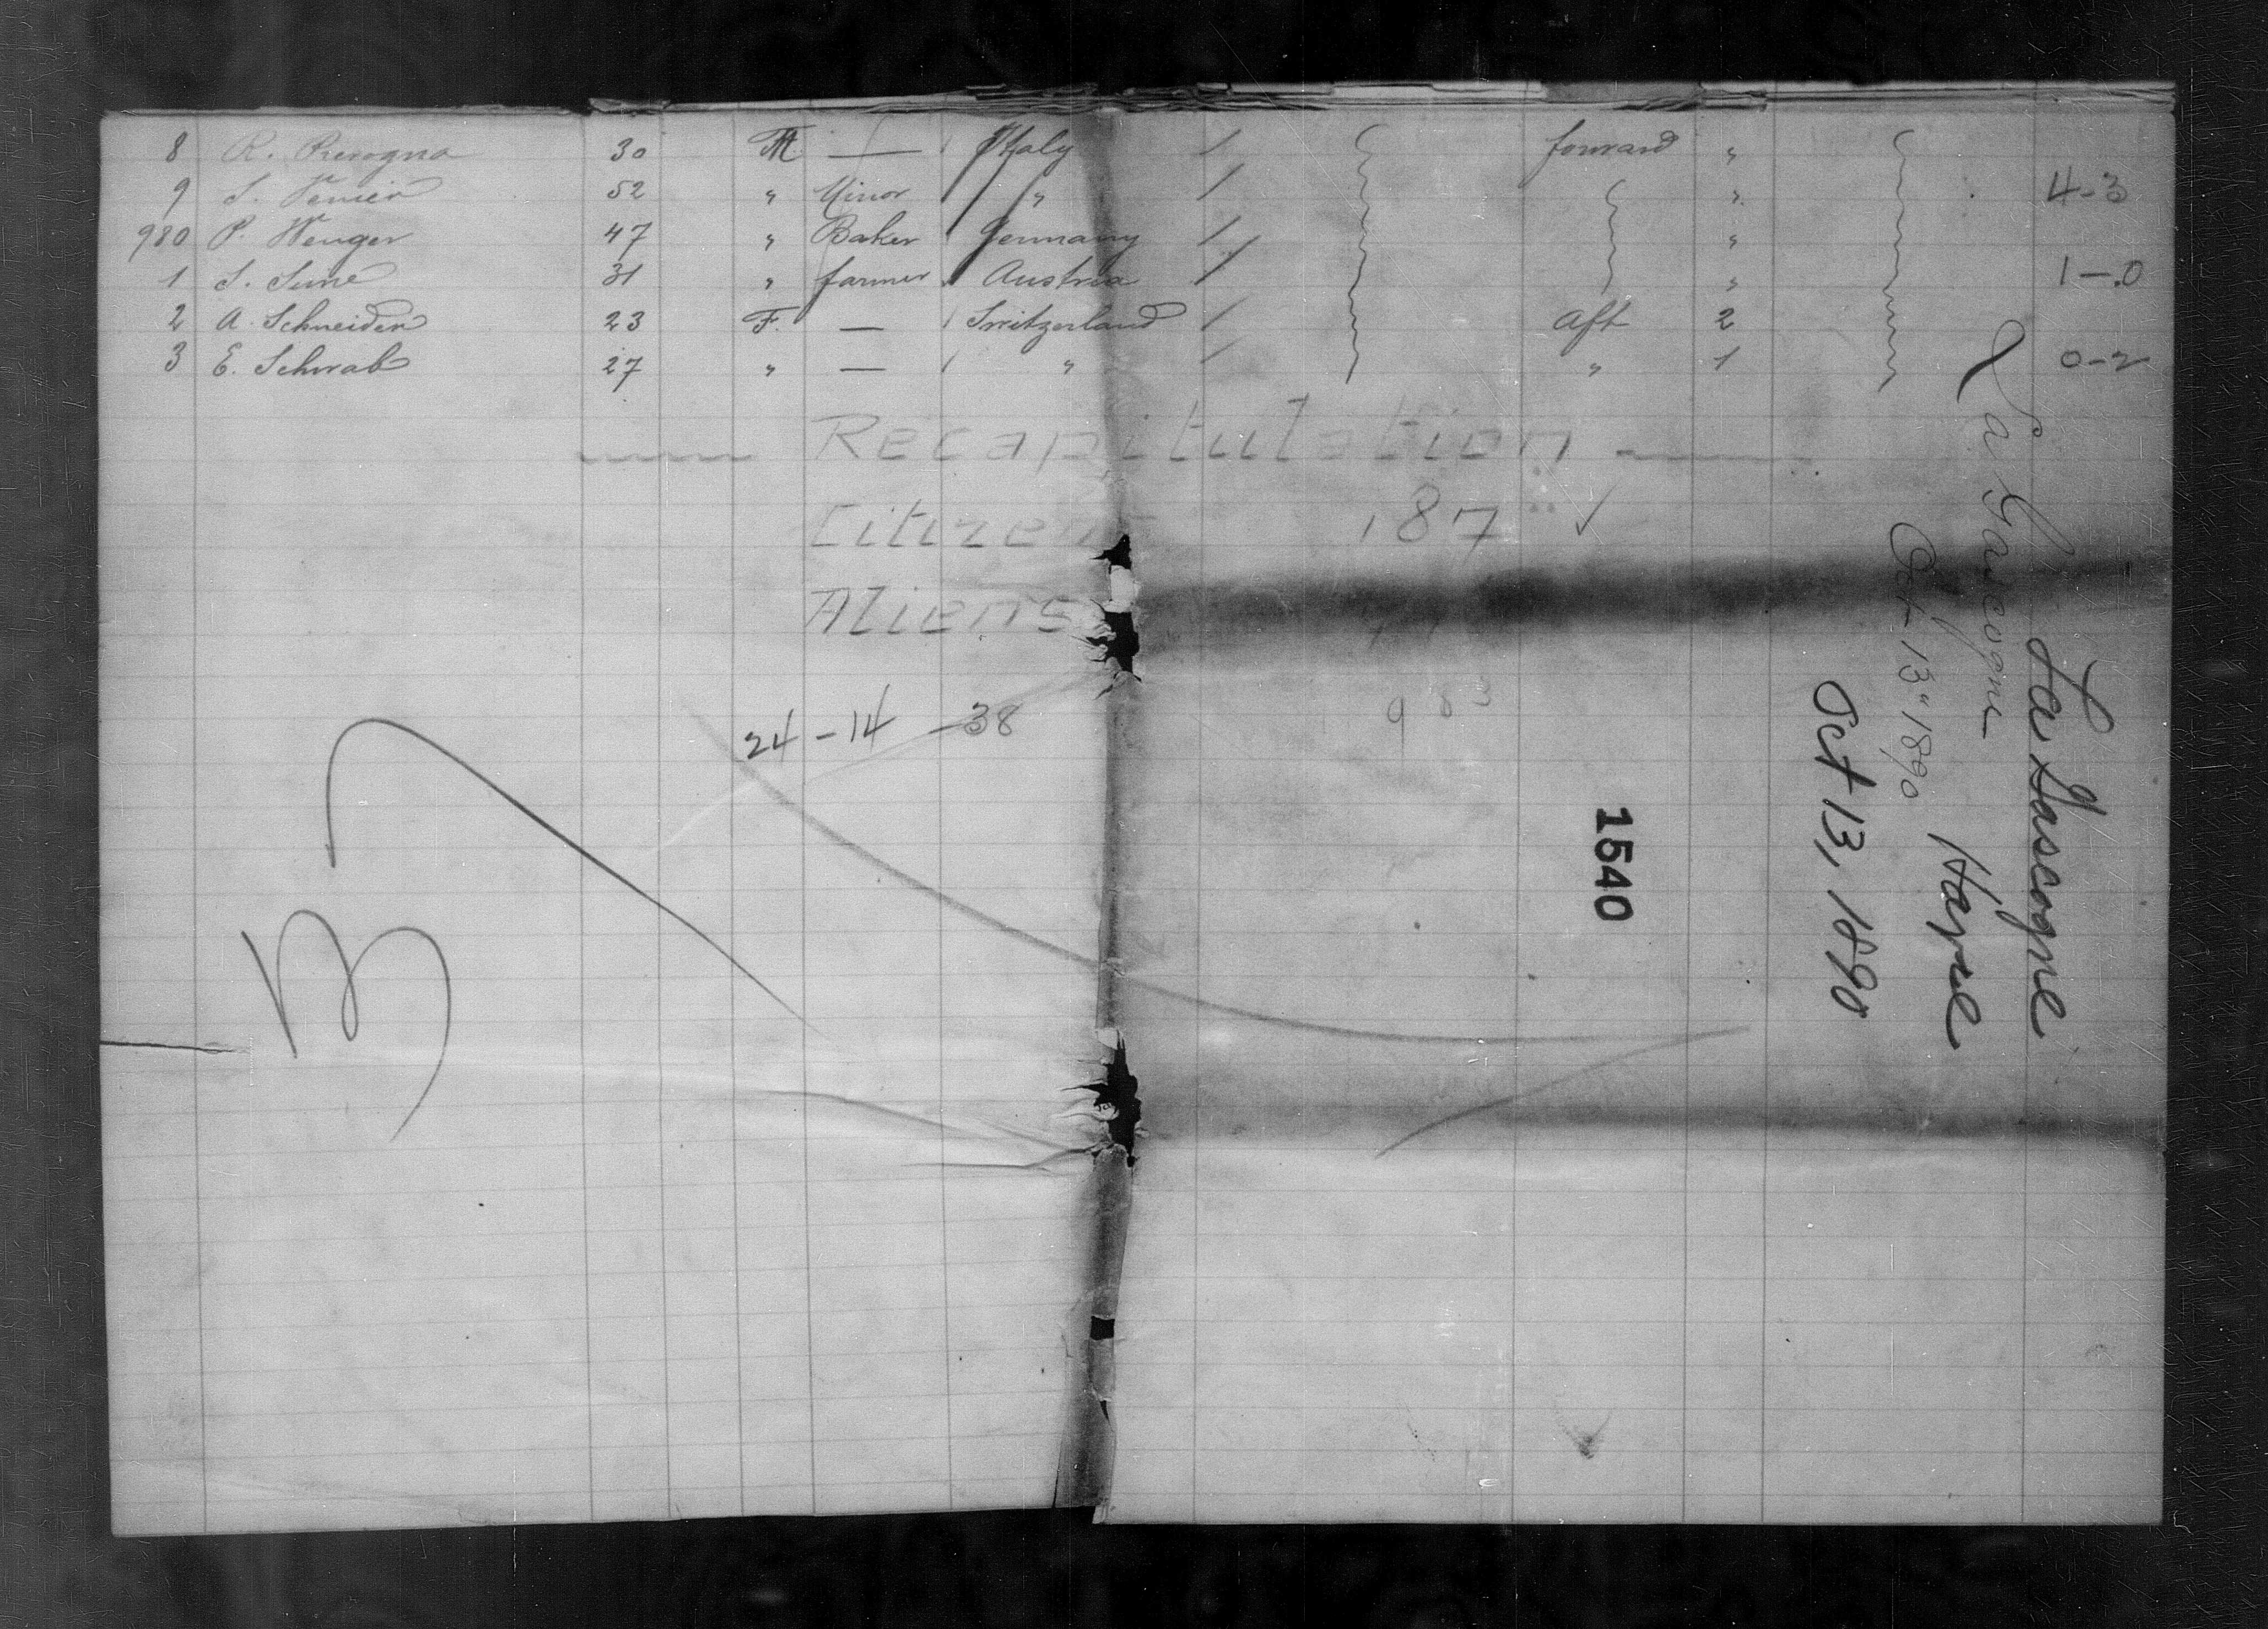 8 R. 30 M. — Italy / forward "
9 S. Venier 52 " Minor " / " 4-3
980 P. Wenger 47 " Baker Germany / "
1 S. 31 " farmer Austria / " 1-0
2 A. Schneider 23 F. — Switzerland / Aft 2
3 E. Schwab 27 " — " / " 1 0-2
Recapitulation
Citizens 187 ✓
Aliens
983
24-14-38
B
1540
La Gascogne
Oct 13" 1890
La Gascogne
Havre
Oct 13, 1890